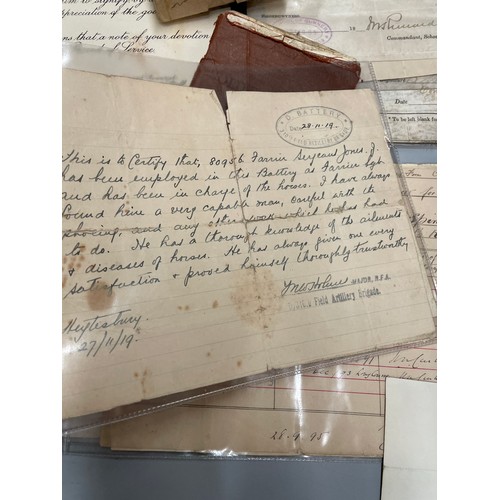 to signify
appreciation of the
ans that a note of your devotion
Record of Service.
19
Commandant,
Date
* To be left blank
D. BATTERY
28-11-19.
This is to Certify that, 80956 Farrier Sergeant Jones. J.
has been employed in this Battery as Farrier Sgt
and has been in charge of the horses. I have always
found him a very capable man, careful with the
shoeing, and any other work which he has had
to do. He has a thorough knowledge of the ailments
& diseases of horses. He has always given one every
satisfaction & proved himself thoroughly trustworthy
MAJOR, R.F.A.
Field Artillery Brigade.
Heytesbury
27/11/19.
28.4.95